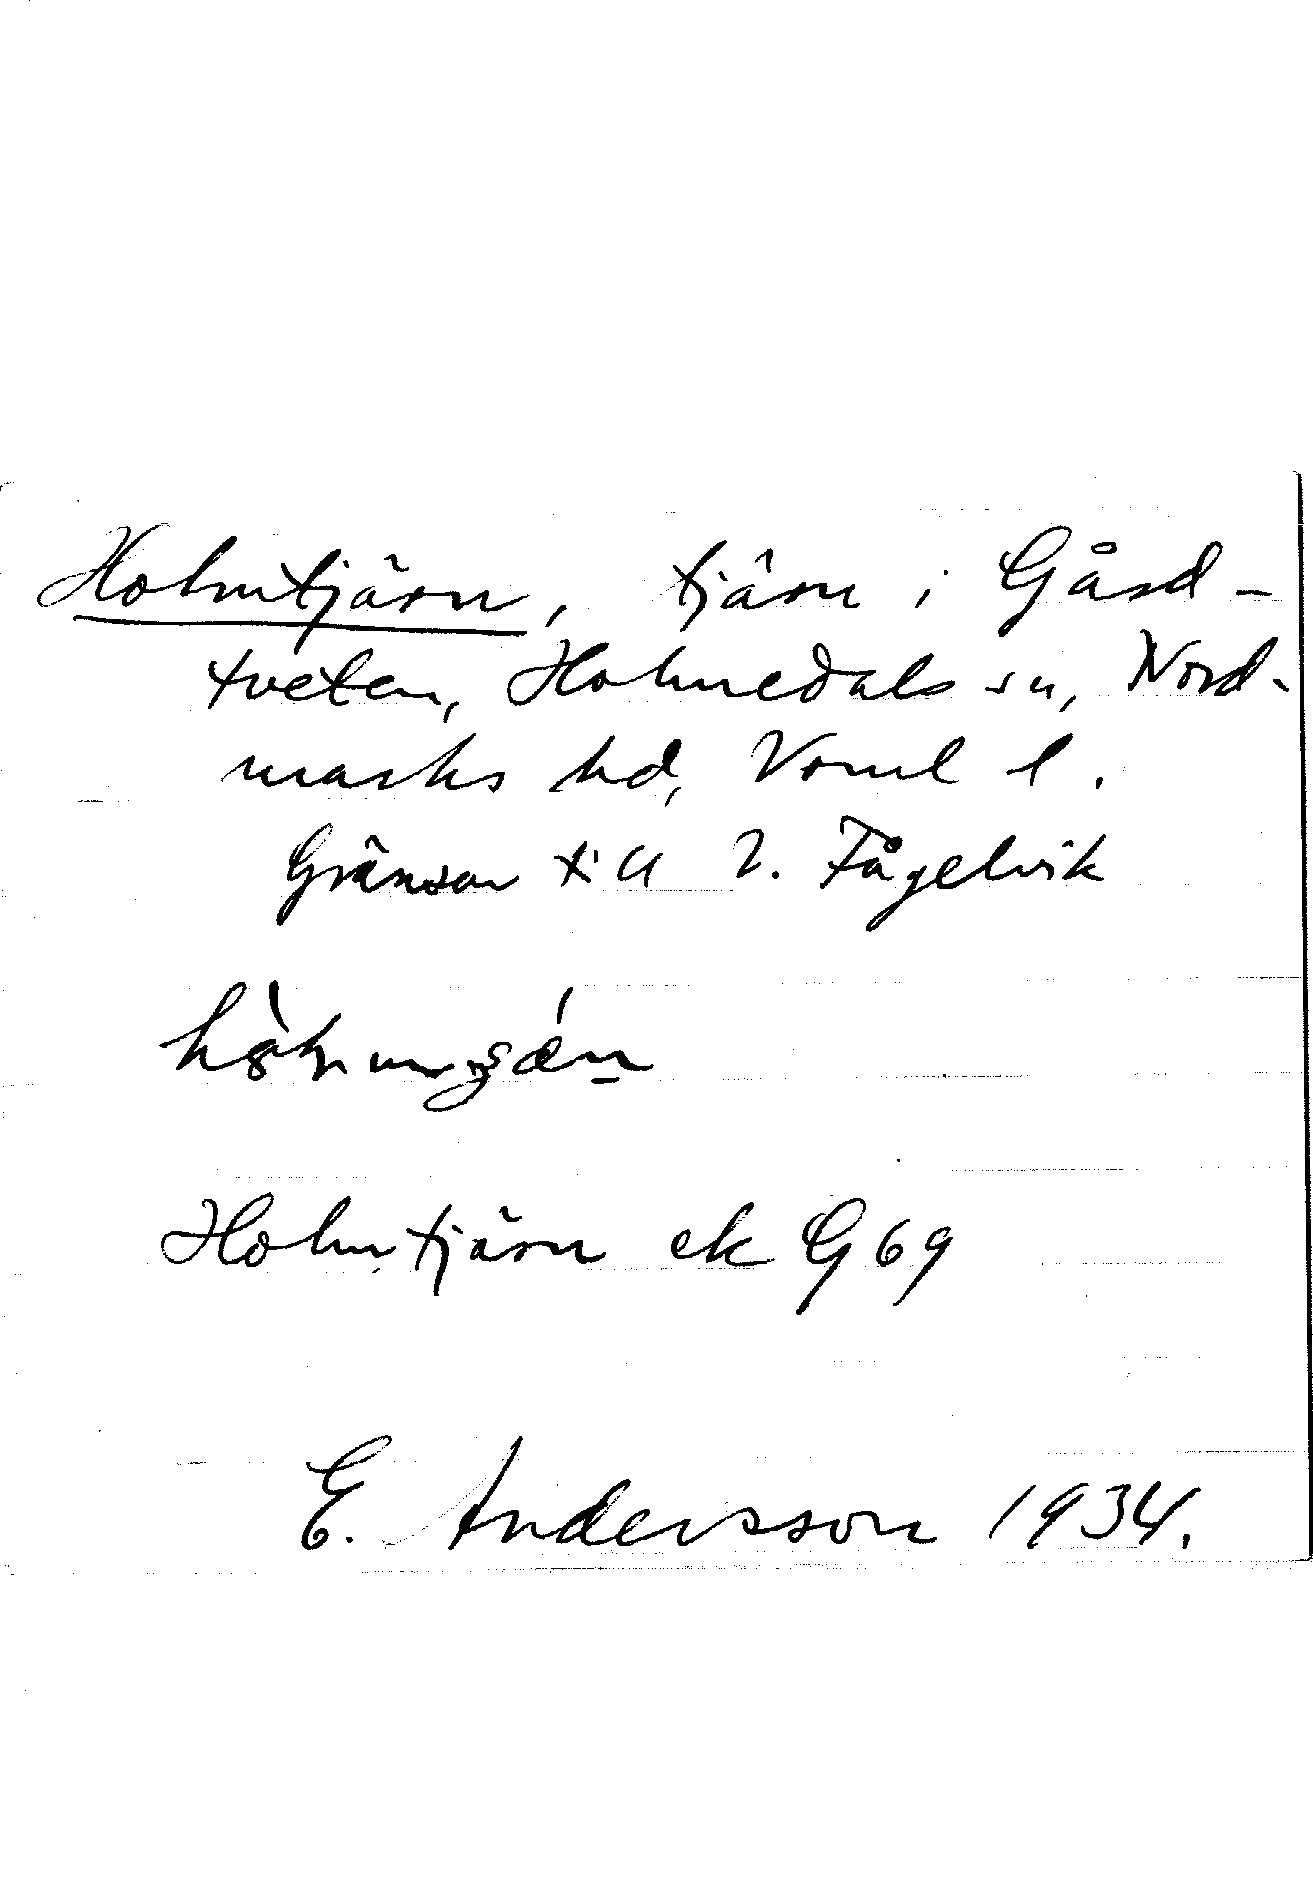 Holmtjärn, tjärn i Gård-
tveten, Holmedals sn, Nord-
marks hd, Vmnl l.
Gränsar till V. Fågelvik
Holmtjärn ek G 69
E. Andersson 1934.